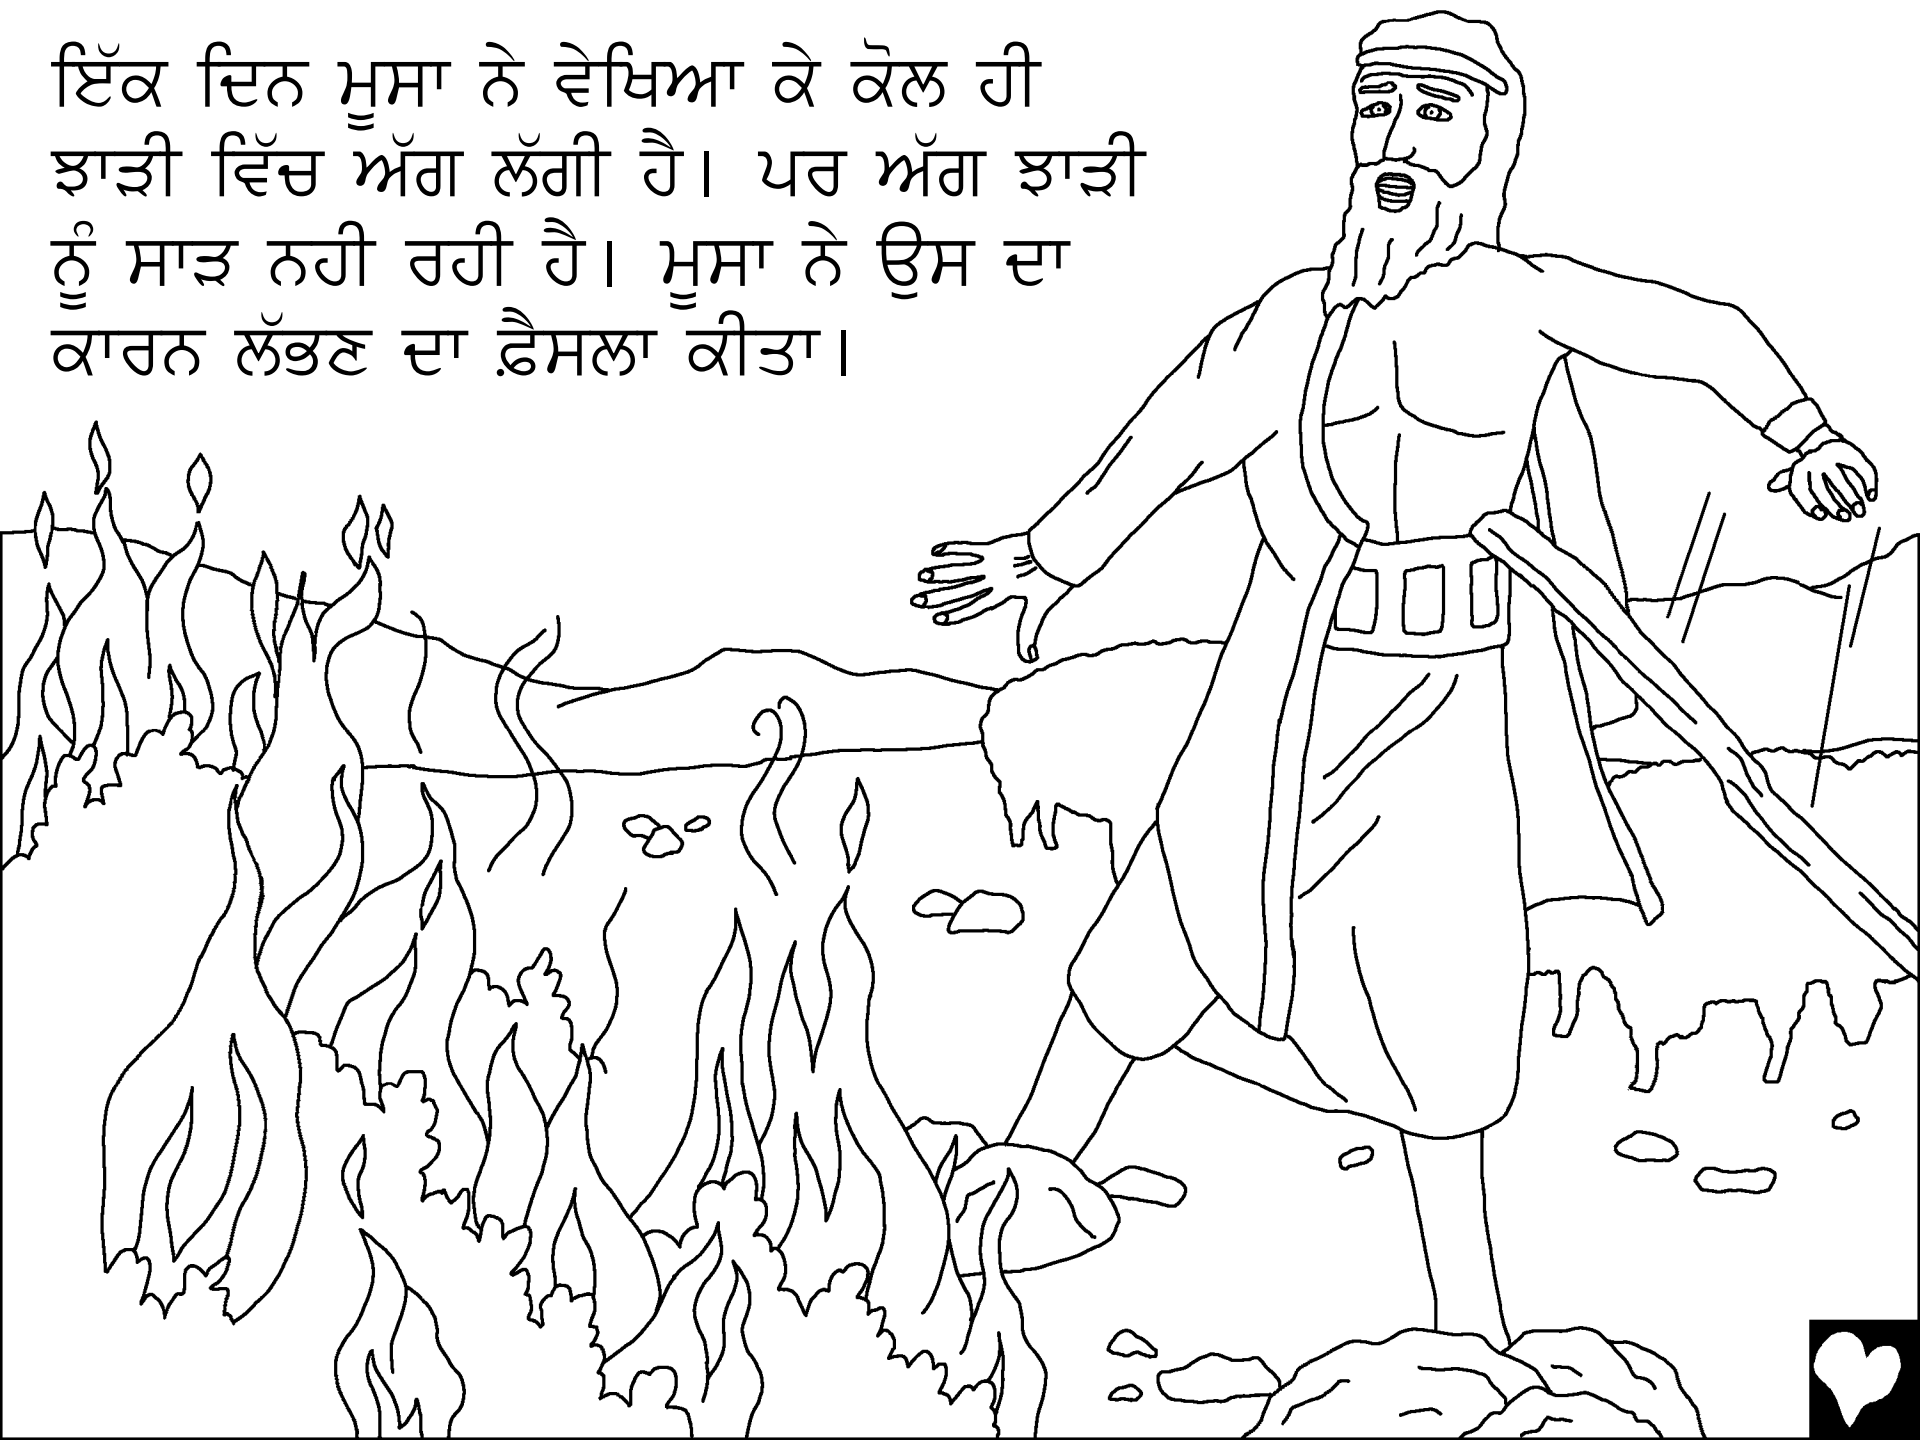 ਇੱਕ ਦਿਨ ਮੂਸਾ ਨੇ ਵੇਖਿਆ ਕੇ ਕੋਲ ਹੀ
ਝਾੜੀ ਵਿੱਚ ਅੱਗ ਲੱਗੀ ਹੈ। ਪਰ ਅੱਗ ਝਾੜੀ
ਨੂੰ ਸਾੜ ਨਹੀ ਰਹੀ ਹੈ। ਮੂਸਾ ਨੇ ਉਸ ਦਾ
ਕਾਰਨ ਲੱਭਣ ਦਾ ਫ਼ੈਸਲਾ ਕੀਤਾ।